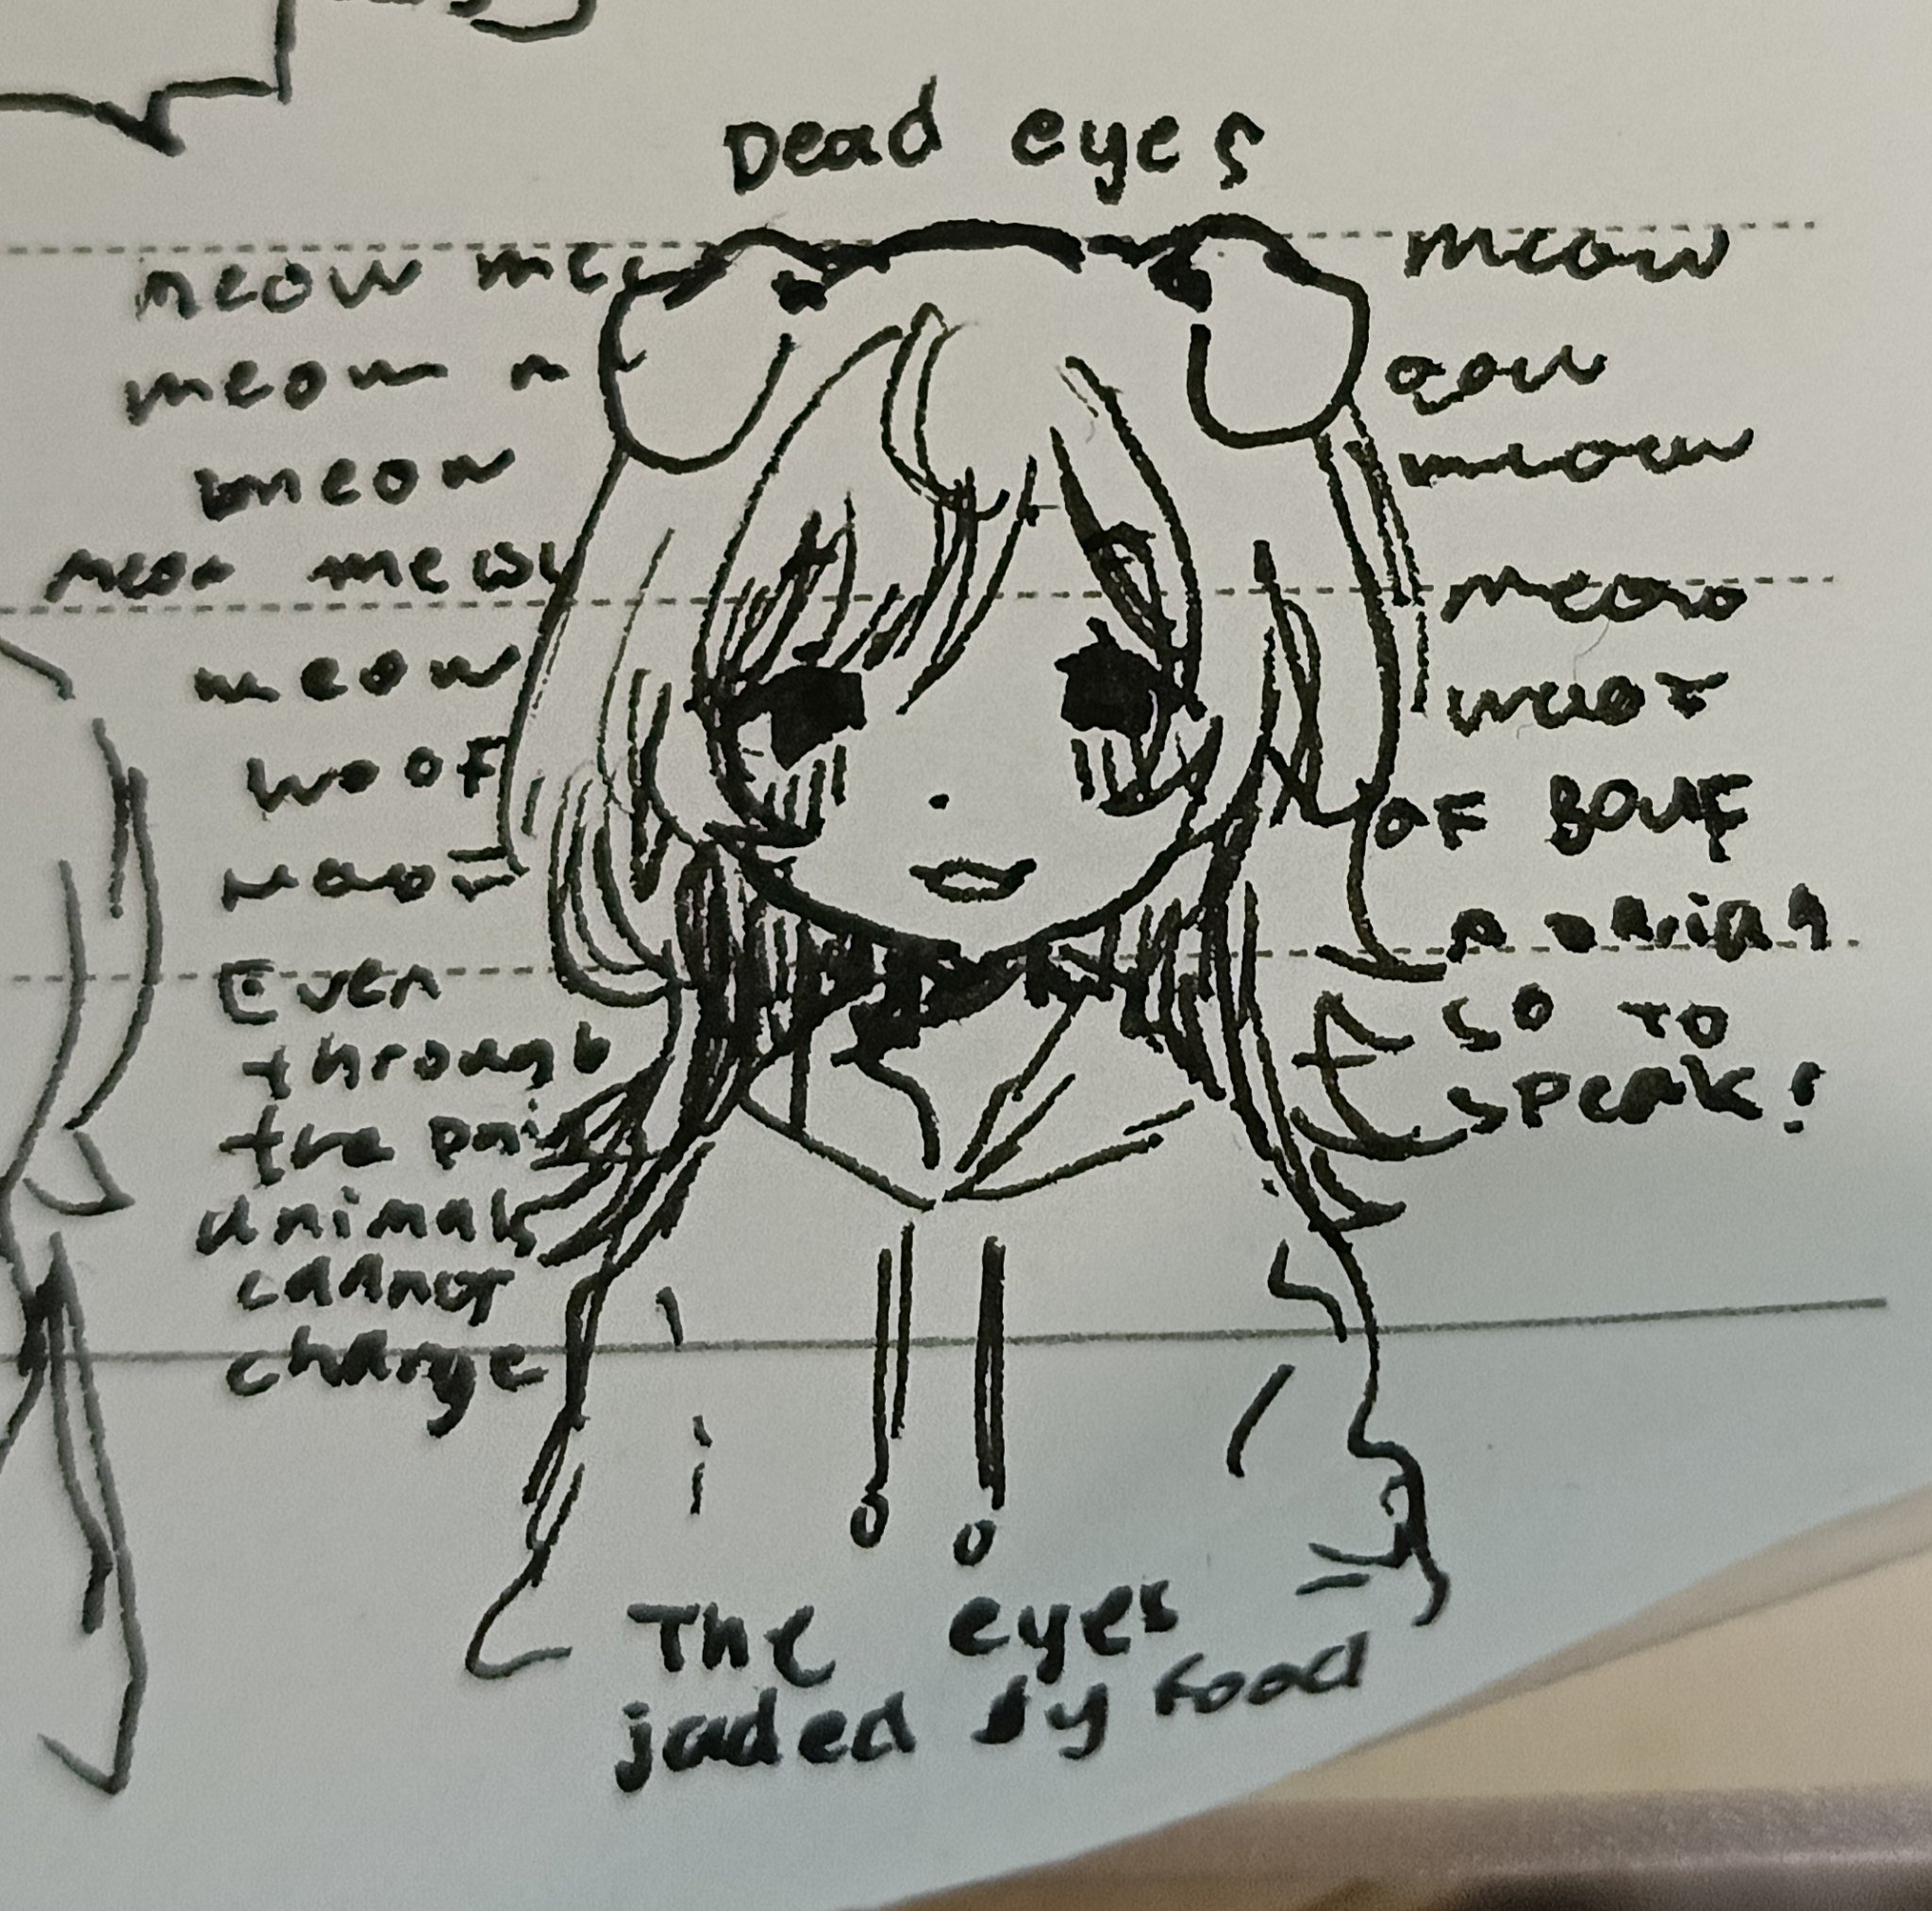 Dead eyes
meow me
meow m
meow
meow meow
meow
woof
Even
through
the pain
animals
cannot
change
meow
aow
meow
meow
woof
OF BOUF
so to
speak!
The eyes
jaded by food